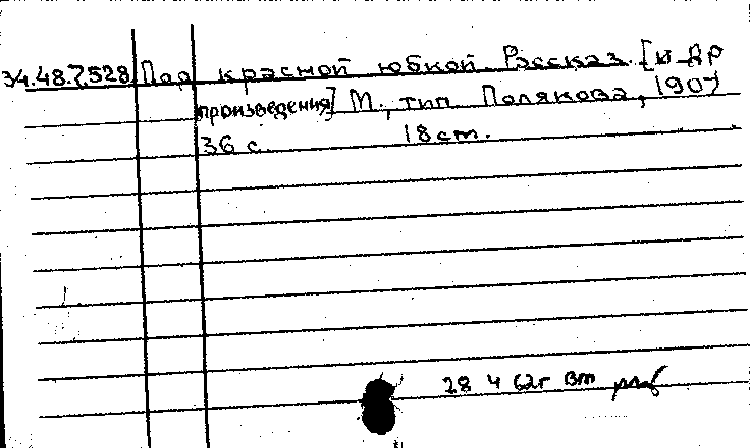 34.48.7.528 Под красной юбкой. Рассказ. [и др
произведения] М., тип Полякова, 1907
36 с. 18 см.
28 4 62г вт